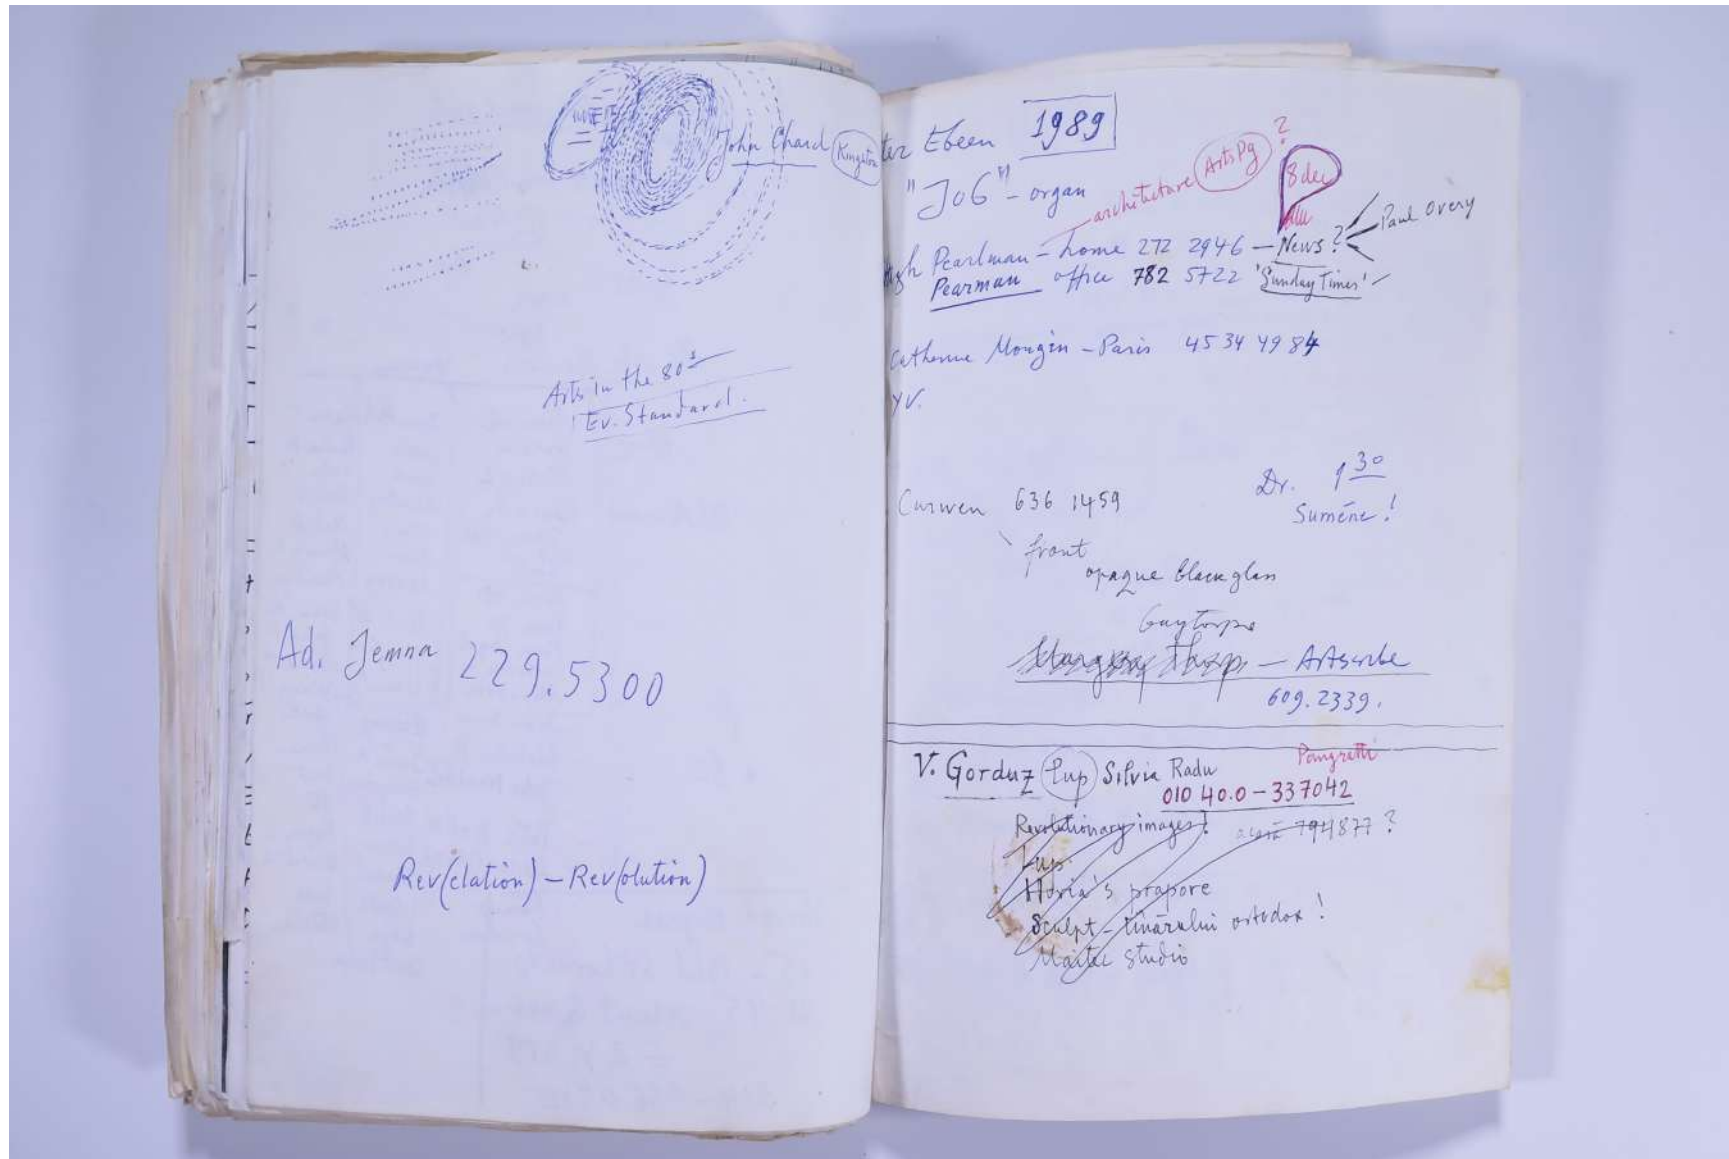 John Chard Kingston
Arts in the 80s
Ev. Standard.
Ad. Jemna 229.5300
Rev(elation) – Rev(olution)
ter Eben 1989
"Job" – organ
architecture ArtsPg ?
8 dec
gh Pearlman – home 272 2946 – News ? Paul Overy
Pearman office 782 5722 'Sunday Times'
Catherine Mougin – Paris 45 34 49 84
YV.
Dr. 1 30
Sumène !
Curwen 636 1459
front
opaque black glass
Guy Torpe
Thorp – Artscribe
609.2339.
V. Gorduz Lup Silvia Radu
010 40.0 – 337042
Revolutionary images! 794877 ?
Lup
Horia's prapore
Sculpt – tînărului ortodox !
Maitec studio